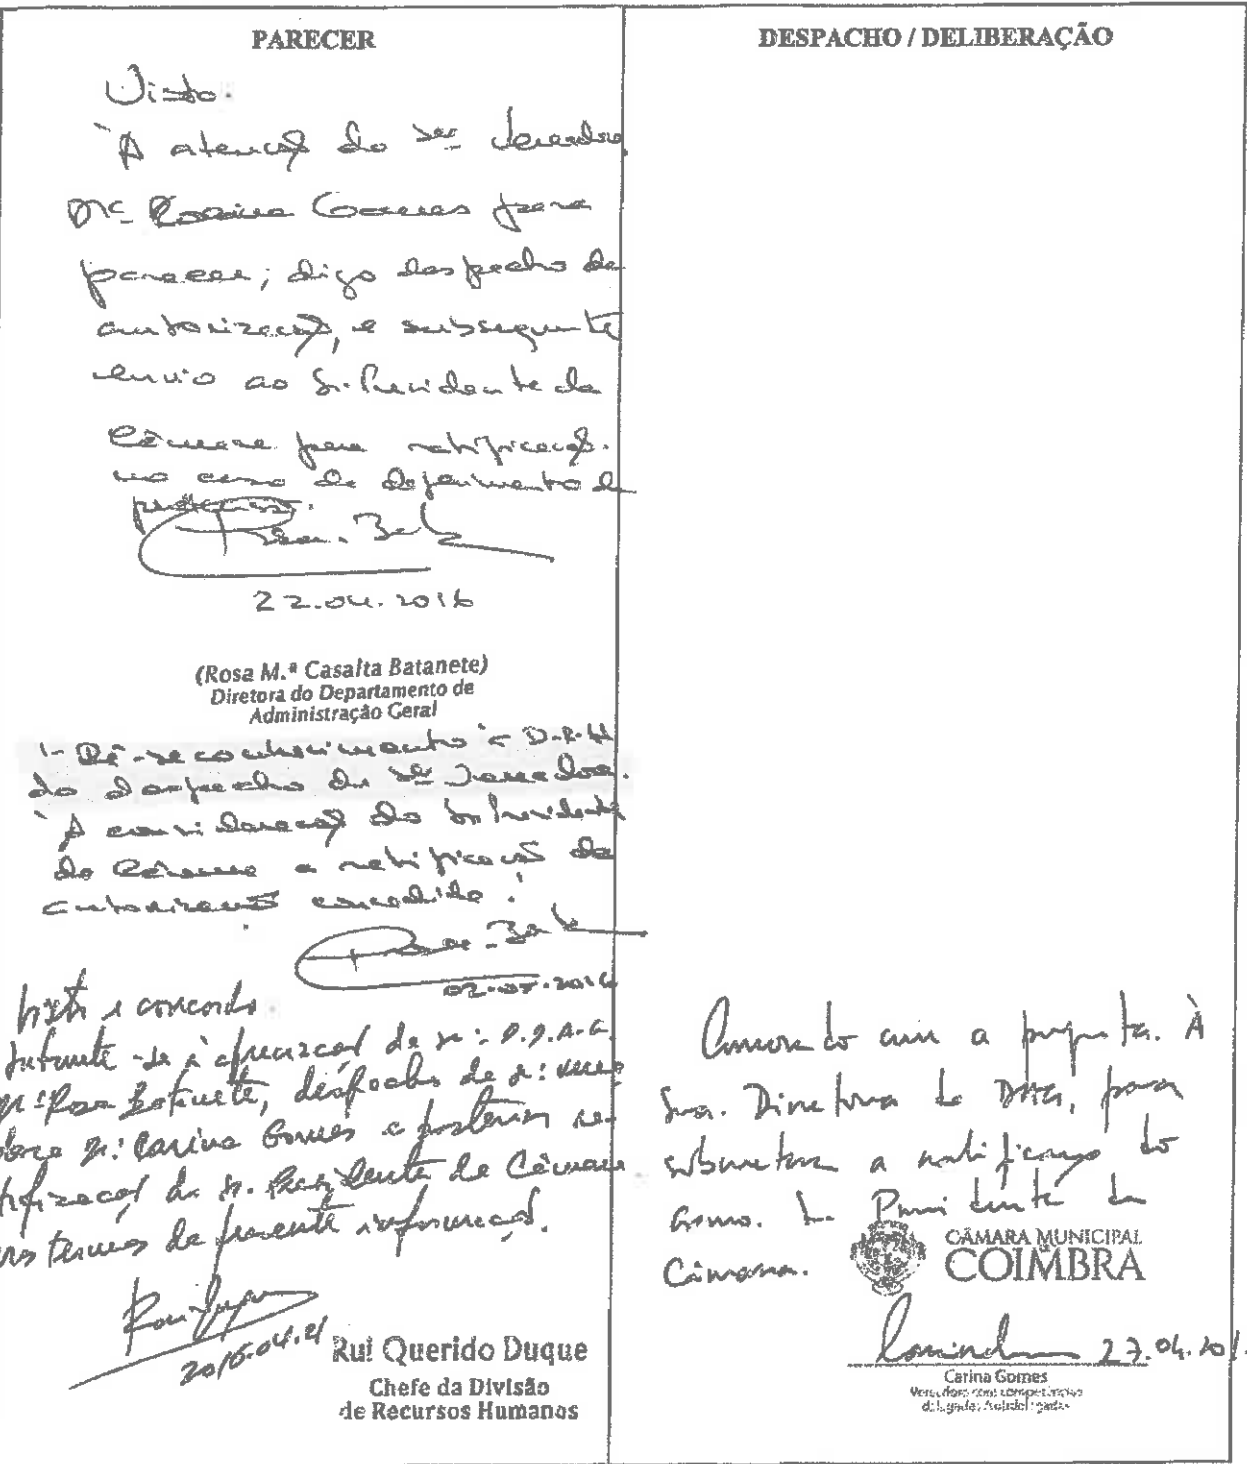 PARECER
Visto.
À atenção do Srª Vereadora
Drª Carina Gomes para
parecer, digo despacho de
autorização, e subsequente
envio ao Sr. Presidente da
Câmara para ratificação.
no caso de deferimento do
22.04.2016
(Rosa M.ª Casalta Batanete)
Diretora do Departamento de
Administração Geral
1- Dê-se conhecimento à D.R.H
do despacho da Srª Vereadora.
À consideração do Sr Presidente
da Câmara a ratificação da
autorização concedida.
02.05.2016
Visto e concordo.
Submete-se à apreciação da Srª D.D.A.G.
Drª Rosa Batanete, despacho da Srª Verea
dora Drª Carina Gomes e posterior ra-
tificação do Sr. Presidente da Câmara
nos termos da presente informação.
2016.04.21
Rui Querido Duque
Chefe da Divisão
de Recursos Humanos
DESPACHO / DELIBERAÇÃO
Concordo com a proposta. À
Sra. Diretora do DAG, para
submeter a ratificação do
Exmo. Sr. Presidente da
Câmara.
CÂMARA MUNICIPAL
COIMBRA
27.04.201
Carina Gomes
Vereadora com competências
delegadas/subdelegadas